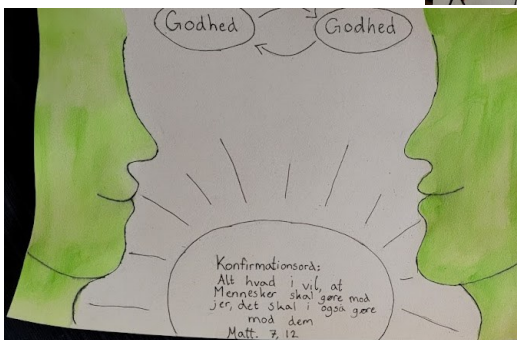 Godhed
Godhed
Konfirmationsord:
Alt hvad i vil, at
Mennesker skal gøre mod
jer, det skal i også gøre
mod dem
Matt. 7,12